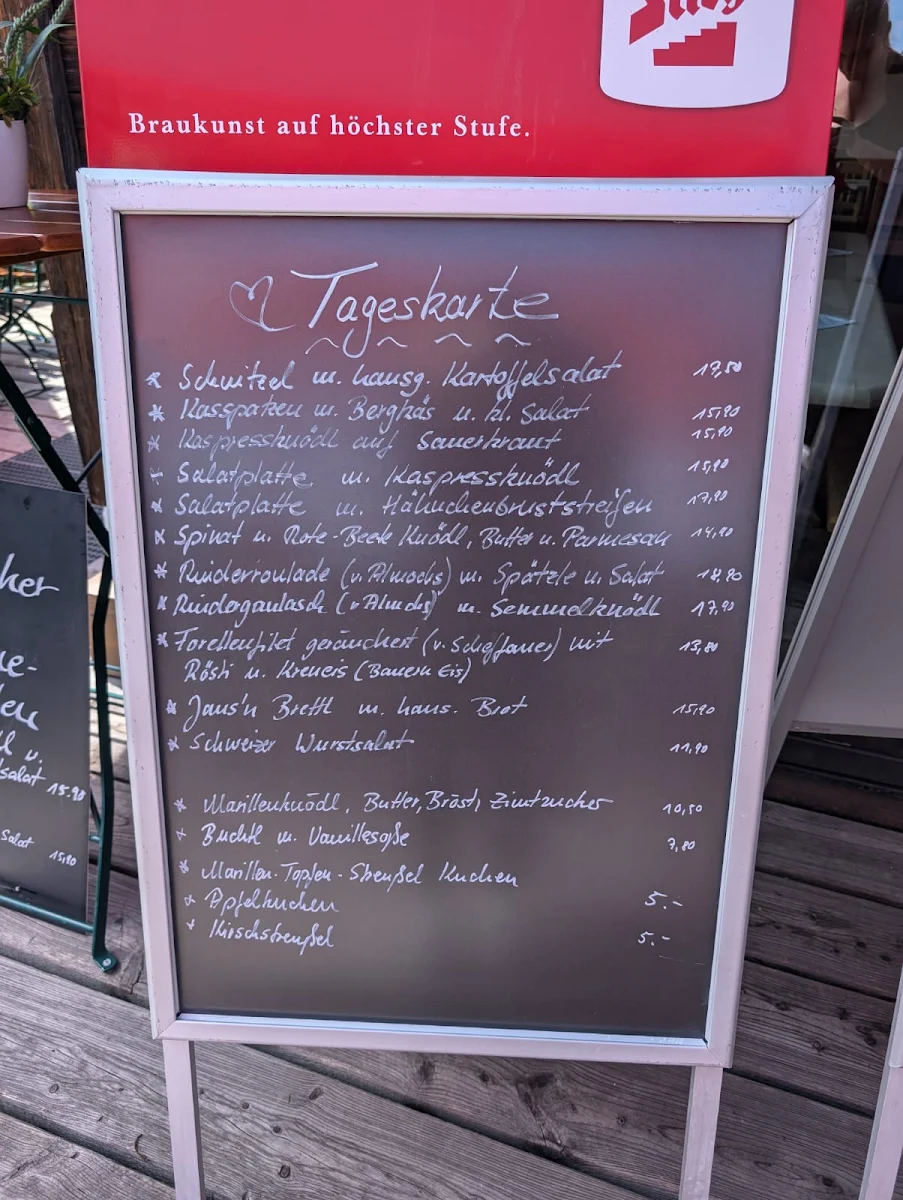 Braukunst auf höchster Stufe.
Tageskarte
* Schnitzel m. hausg. Kartoffelsalat 17,50
* Kasspatzen m. Bergkäs u. kl. Salat 15,90
* Kaspressknödl auf Sauerkraut 15,90
* Salatplatte m. Kaspressknödl 15,90
* Salatplatte m. Hähnchenbruststreifen 17,90
* Spinat u. Rote-Beete Knödl, Butter u. Parmesan 14,90
* Rinderroulade (v. Almochs) m. Spätzle u. Salat 18,90
* Rindergaulasch (v Almochs) m. Semmelknödl 17,90
* Forellenfilet geräuchert (v. ) mit 13,80
Rösti u. Kreneis (Bauern Eis)
* Jaus'n Brettl m. haus. Brot 15,90
* Schweizer Wurstsalat 11,90
* Marillenknödl, Butter, Brösl, Zimtzucker 10,50
* Buchtl m. Vanillesoße 7,80
* Marillen-Topfen-Streußel Kuchen
* Apfelkuchen 5.-
* Kirschstreußel 5.-
cher
salat 15.90
Salat
15,90